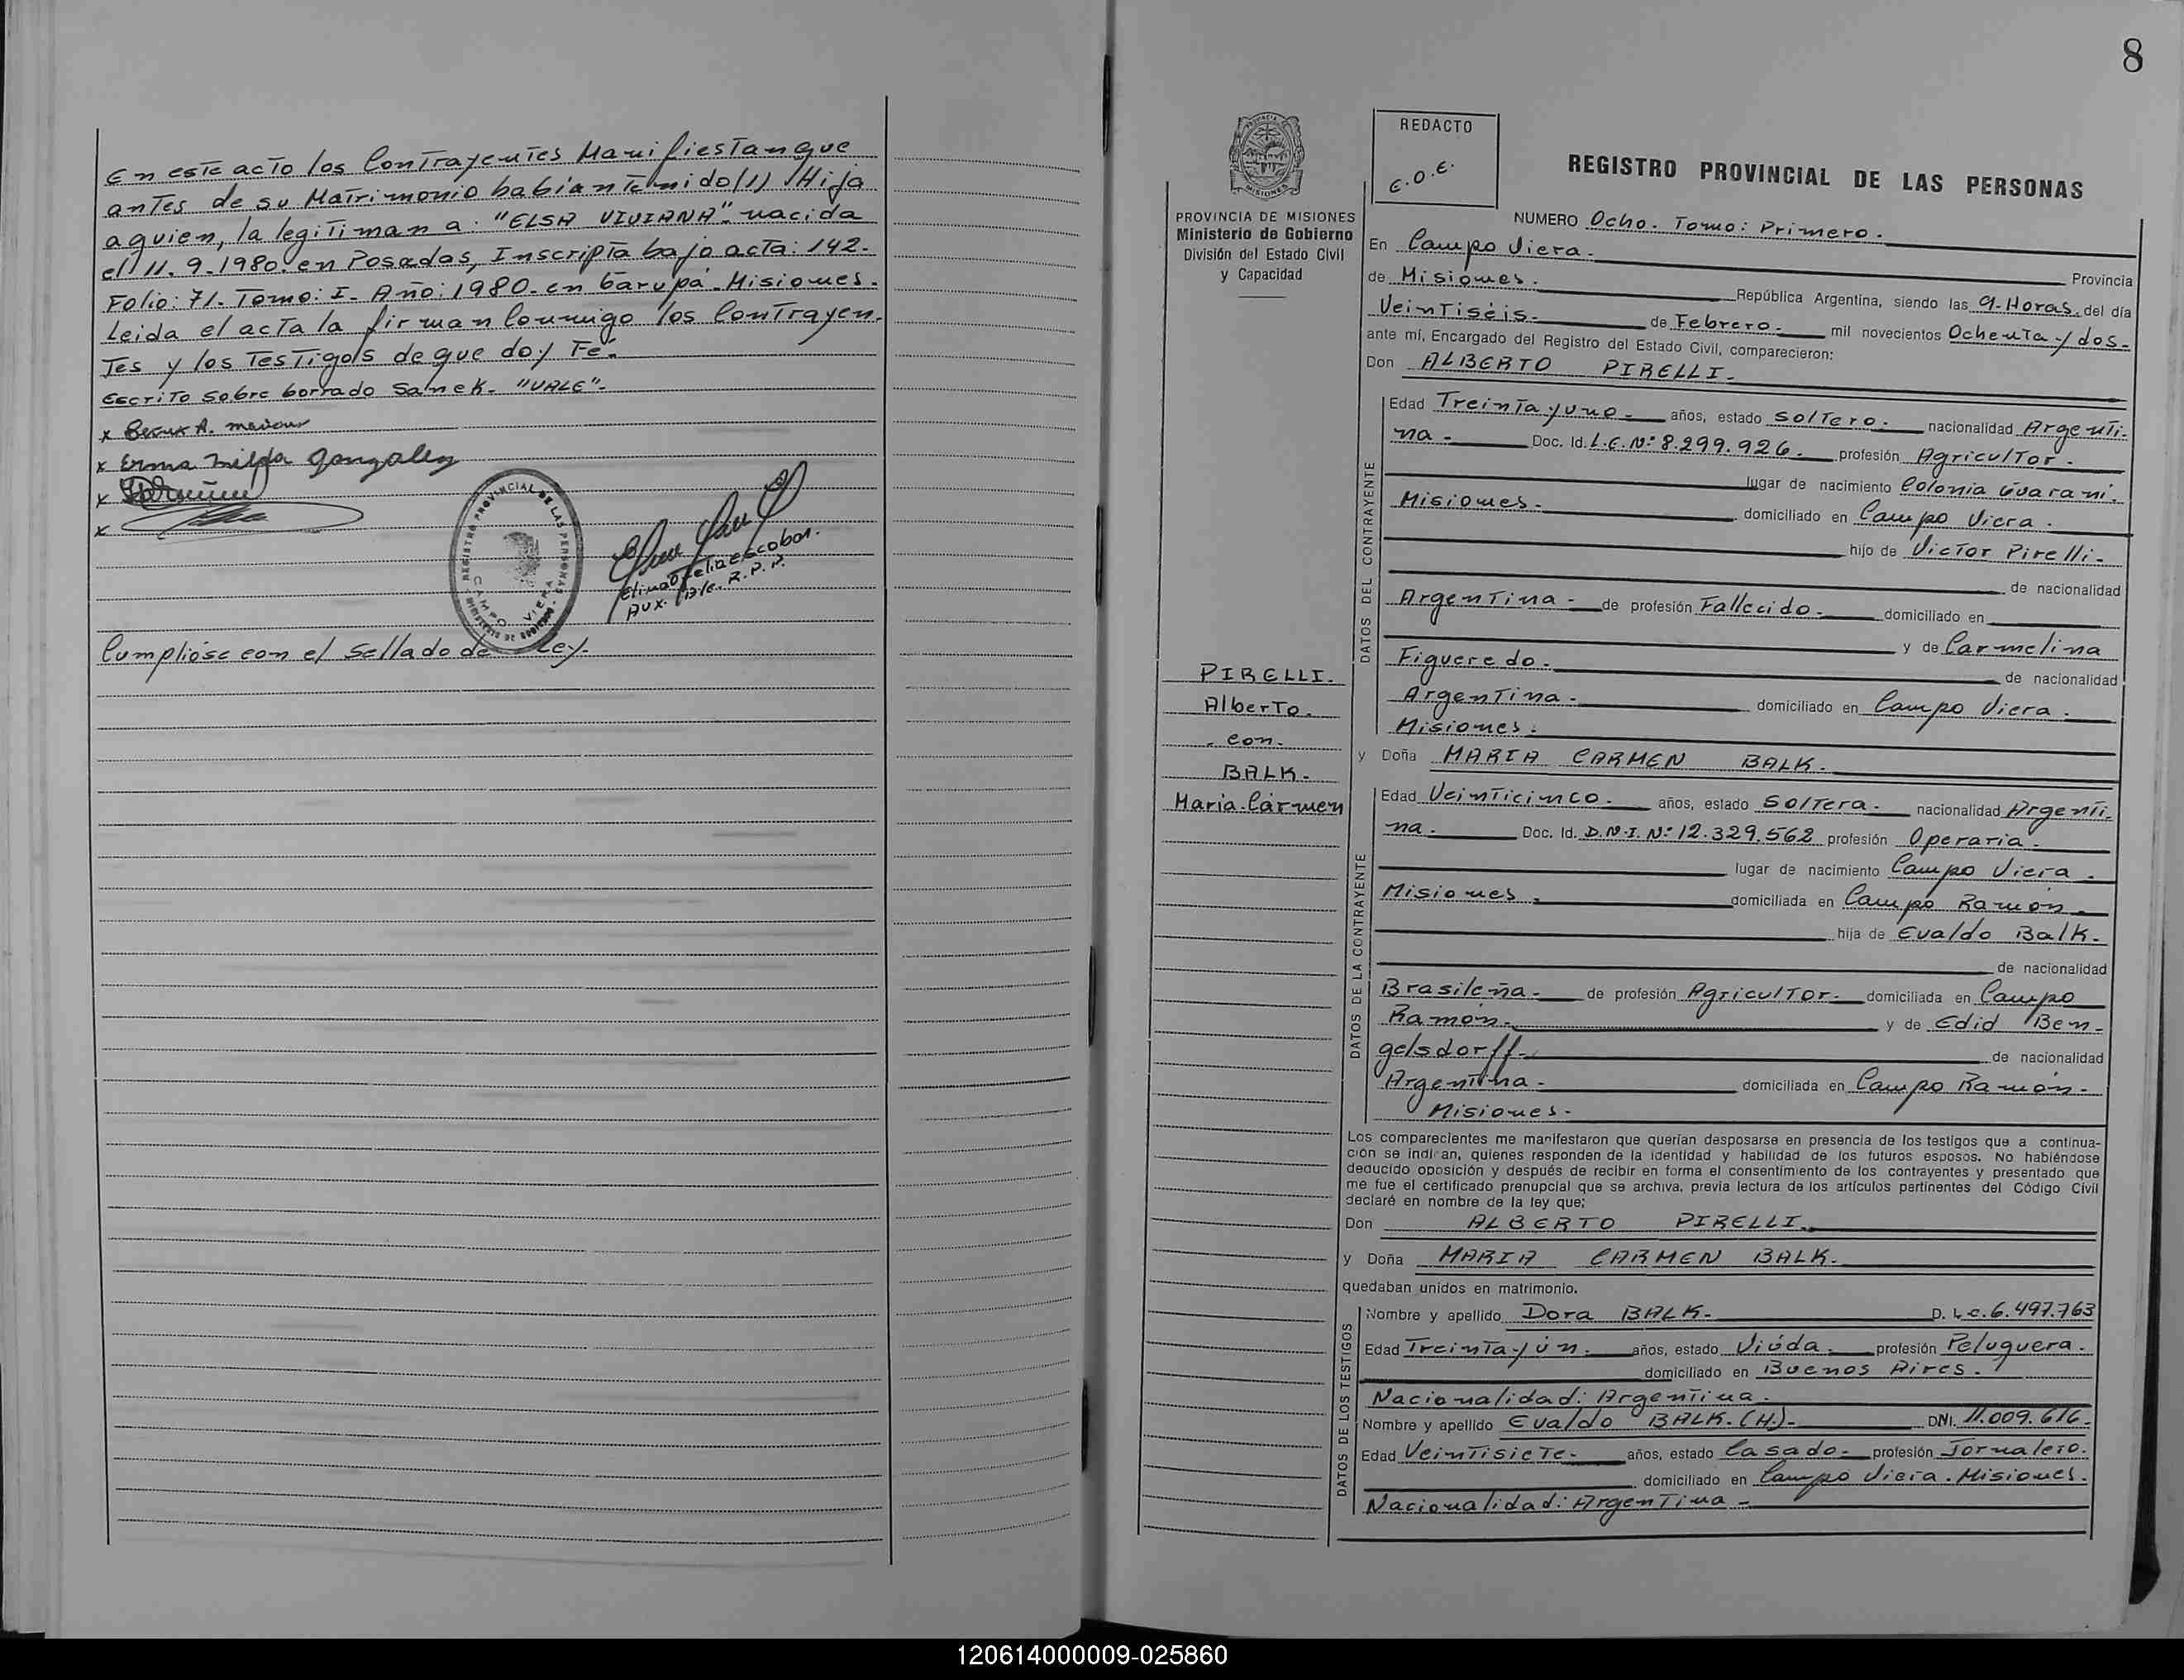 En este acto los Contrayentes Manifiestan que
antes de su Matrimonio habian tenido (1) Hija
a quien, la legitiman a: "ELSA VIVIANA". nacida
el 11.9.1980. en Posadas, Inscripta bajo acta: 142.
Folio: 71. Tomo: I. Año: 1980. en Garupá. Misiones.
Leida el acta la firman Conmigo los Contrayen.
Tes y los Testigos de que doy Fé.
Escrito sobre borrado Sanek. "VALE".
x
x Erma Nilda Gonzalez
x
x
REGISTRO PROVINCIAL DE LAS PERSONAS
CAMPO VIERA
Elina Ofelia Escobar.
Aux. R.P.P.
Cumplióse con el Sellado de Ley.
8
PROVINCIA DE MISIONES
Ministerio de Gobierno
División del Estado Civil
y Capacidad
REDACTO
E.O.E.
REGISTRO PROVINCIAL DE LAS PERSONAS
NUMERO Ocho. Tomo: Primero.
En Campo Viera. Provincia
de Misiones. República Argentina, siendo las 9. Horas. del día
Veintiséis. de Febrero. mil novecientos Ochenta y dos.
ante mí, Encargado del Registro del Estado Civil, comparecieron:
Don ALBERTO PIRELLI.
DATOS DEL CONTRAYENTE
Edad Treinta y uno. años, estado Soltero. nacionalidad Argenti-
na. Doc. Id. L.E. Nº 8.299.926. profesión Agricultor.
lugar de nacimiento Colonia Guaraní.
Misiones. domiciliado en Campo Viera.
hijo de Victor Pirelli.
de nacionalidad
Argentina. de profesión Fallecido. domiciliado en
y de Carmelina
Figueredo. de nacionalidad
Argentina. domiciliado en Campo Viera.
Misiones.
PIRELLI.
Alberto.
. con.
BALK.
Maria Cármen
y Doña MARIA CARMEN BALK.
DATOS DE LA CONTRAYENTE
Edad Veinticinco. años, estado Soltera. nacionalidad Argenti-
na. Doc. Id. D.N.I. Nº 12.329.562 profesión Operaria.
lugar de nacimiento Campo Viera.
Misiones. domiciliada en Campo Ramón.
hija de Evaldo Balk.
de nacionalidad
Brasileña. de profesión Agricultor. domiciliada en Campo
Ramón. y de Edid Ben-
gelsdorff. de nacionalidad
Argentina. domiciliada en Campo Ramón.
Misiones.
Los comparecientes me manifestaron que querían desposarse en presencia de los testigos que a continua-
ción se indican, quienes responden de la identidad y habilidad de los futuros esposos. No habiéndose
deducido oposición y después de recibir en forma el consentimiento de los contrayentes y presentado que
me fue el certificado prenupcial que se archiva, previa lectura de los artículos pertinentes del Código Civil
declaré en nombre de la ley que:
Don ALBERTO PIRELLI.
y Doña MARIA CARMEN BALK.
quedaban unidos en matrimonio.
DATOS DE LOS TESTIGOS
Nombre y apellido Dora BALK. D. L.C. 6.497.763
Edad Treinta y ún. años, estado Viúda. profesión Peluquera.
domiciliado en Buenos Aires.
Nacionalidad: Argentina.
Nombre y apellido Evaldo BALK. (H). DNI. 11.009.616.
Edad Veintisiete. años, estado Casado. profesión Jornalero.
domiciliado en Campo Viera. Misiones.
Nacionalidad: Argentina.
120614000009-025860